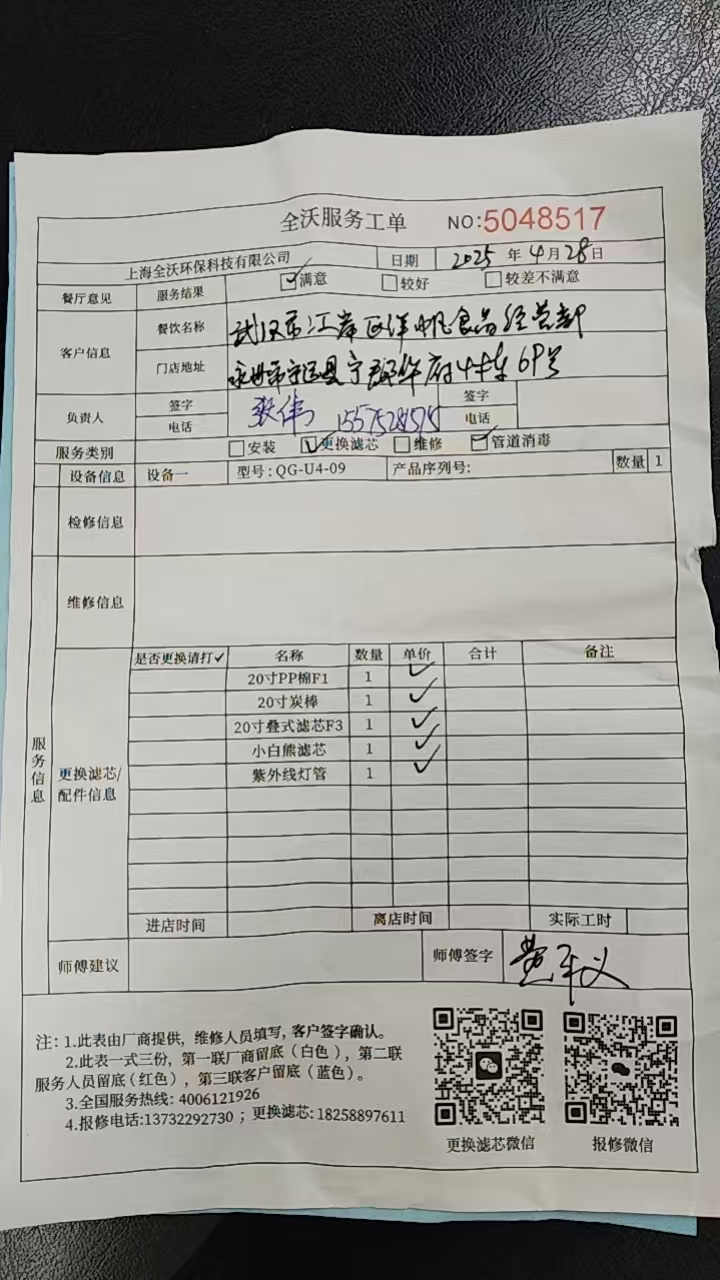 全沃服务工单 NO:5048517
上海全沃环保科技有限公司 日期 2025 年 4 月 28 日
餐厅意见 服务结果 满意 较好 较差不满意
客户信息 餐饮名称 武汉市江岸区洋帆食品经营部
门店地址 永州市宁远县宁郡华府4栋69号
负责人 签字 张伟 签字
电话 电话
服务类别 安装 更换滤芯 维修 管道消毒
设备信息 设备一 型号:QG-U4-09 产品序列号: 数量 1
检修信息
维修信息
是否更换请打✓ 名称 数量 单价 合计 备注
20寸PP棉F1 1 ✓
20寸炭棒 1 ✓
20寸叠式滤芯F3 1 ✓
小白熊滤芯 1 ✓
紫外线灯管 1 ✓
服务信息
更换滤芯/
配件信息
进店时间 离店时间 实际工时
师傅建议 师傅签字
注: 1.此表由厂商提供, 维修人员填写, 客户签字确认。
2.此表一式三份, 第一联厂商留底(白色), 第二联
服务人员留底(红色), 第三联客户留底(蓝色)。
3.全国服务热线: 4006121926
4.报修电话:13732292730 ; 更换滤芯: 18258897611
更换滤芯微信 报修微信